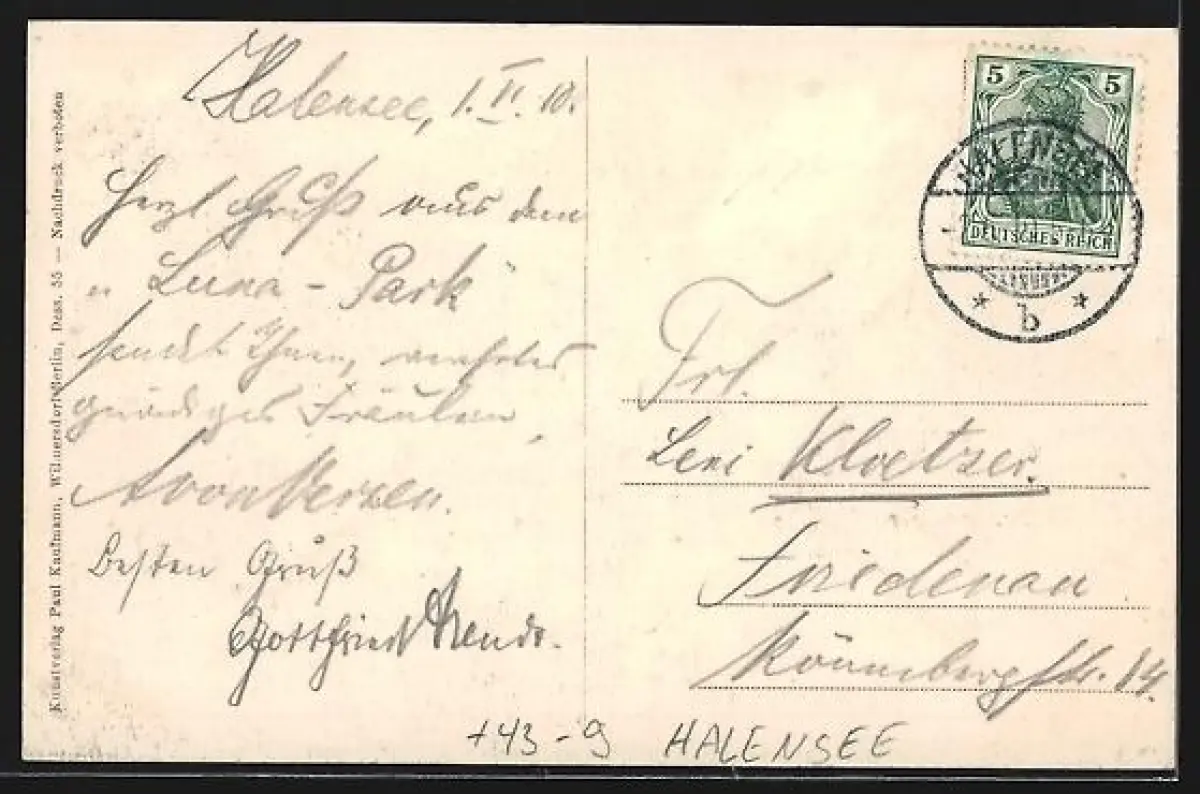 Halensee, 1. VI. 10.
Herzl. Gruß aus dem
„Luna-Park“
sendet Ihnen, verehrtes
gnädiges Fräulein,
Besten Gruß
Gottfried
Kunstverlag Paul Kaufmann, Wilmersdorf-Berlin, Dess. 55 — Nachdruck verboten
5 5
DEUTSCHES REICH
HALENSEE
* b *
Frl.
Leni Kloetzer.
Friedenau
Rönnebergstr. 14.
+43-9 HALENSEE